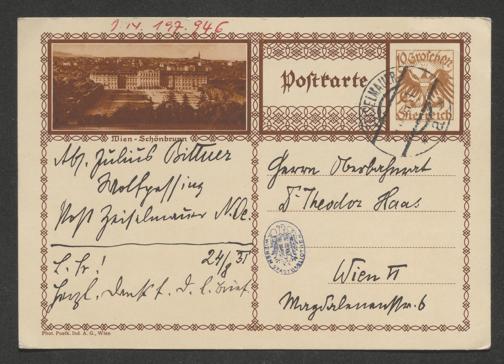 I.N. 197.946
Postkarte
10 Groschen
Österreich
ZEISELMAUER
Wien - Schönbrunn
Abs. Julius Bittner
Wolfpassing
Post Zeiselmauer N.Oe.
24/8 31
L. Fr.!
Herzl. Dank f. D. l. Brief
Herrn Oberbahnrat
Dr Theodor Haas
Wien VI
Magdalenenstr. 6
Phot. Postk. Ind. A. G., Wien